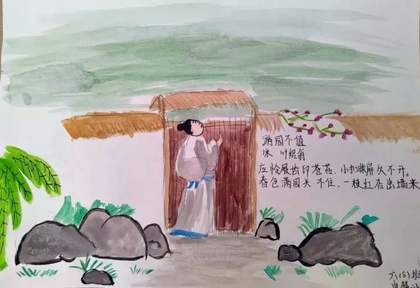 满园不值
宋 叶绍翁
怜屐齿印苍苔,小扣柴扉久不开,
春色满园关不住,一枝红杏出墙来
六(5)班